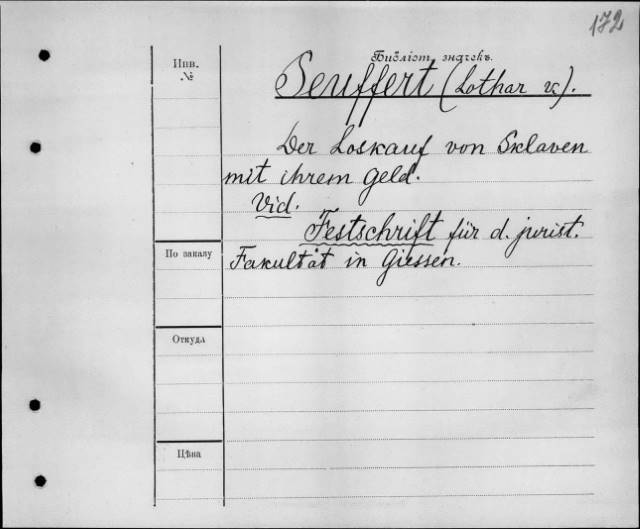 172
Инв.
№
Библіот. значекъ.
Seuffert (Lothar v.).
Der Loskauf von Sklaven
mit ihrem Geld.
Vid.
Festschrift für d. jurist.
По заказу
Fakultät in Giessen.
Откуда
Цѣна